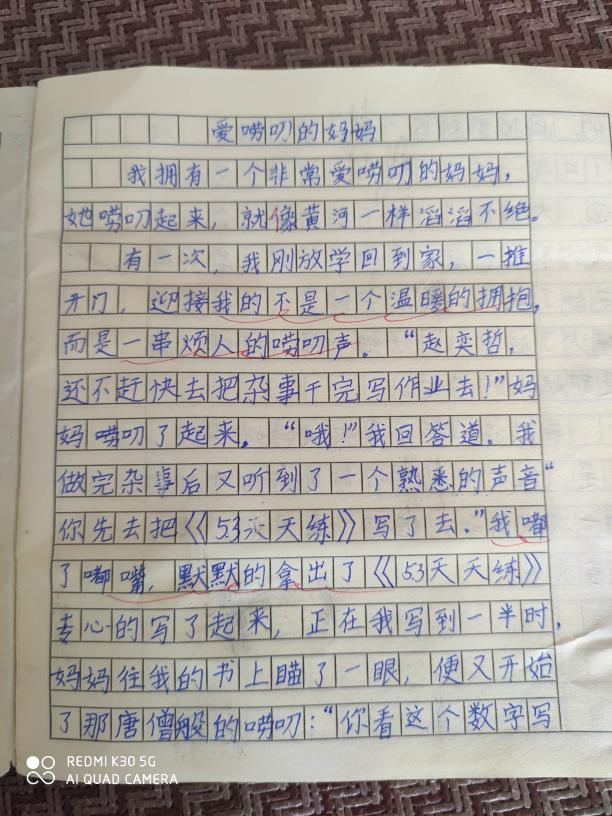 爱唠叨的妈妈
我拥有一个非常爱唠叨的妈妈，
她唠叨起来，就像黄河一样滔滔不绝。
有一次，我刚放学回到家，一推
开门，迎接我的不是一个温暖的拥抱，
而是一串烦人的唠叨声。“赵奕哲，
还不赶快去把杂事干完写作业去！”妈
妈唠叨了起来。“哦！”我回答道。我
做完杂事后又听到了一个熟悉的声音“
你先去把《53天天练》写了去。”我嘟
了嘟嘴，默默的拿出了《53天天练》
专心的写了起来，正在我写到一半时，
妈妈往我的书上瞄了一眼，便又开始
了那唐僧般的唠叨：“你看这个数字写
REDMI K30 5G
AI QUAD CAMERA